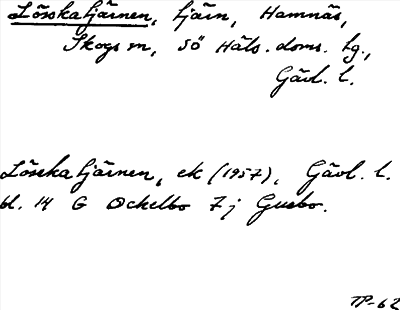 Lösskatjärnen, tjärn, Hamnäs,
Skogs sn, sö Häls. doms. tg.,
Gävl. l.
Lösskatjärnen, ek (1957), Gävl. l.
bl. 14 G Ockelbo 7j Gusbo.
TP-62